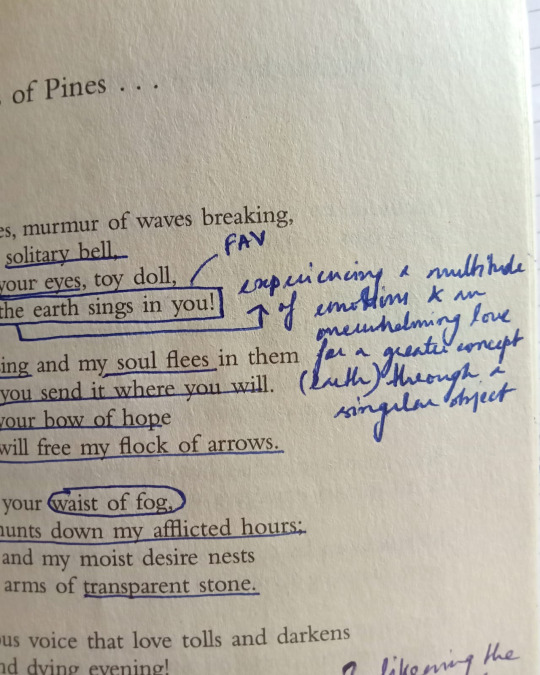 , of Pines . . .
es, murmur of waves breaking,
solitary bell,
FAV
your eyes, toy doll,
the earth sings in you!
experiencing a multitude
of emotions & an
overwhelming love
for a greater concept
(earth) through a
singular object
ing and my soul flees in them
you send it where you will.
your bow of hope
will free my flock of arrows.
your waist of fog,
unts down my afflicted hours;
and my moist desire nests
arms of transparent stone.
us voice that love tolls and darkens
nd dying evening!
likening the